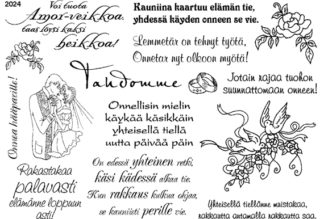 2024
Voi tuota
Amor-veikkoa,
taas löysi kaksi
heikkoa!
Kauniina kaartuu elämän tie,
yhdessä käyden onneen se vie.
Lemmetär on tehnyt työtä,
Onnetar nyt olkoon myötä!
Tahdomme
Jotain rajaa tuohon
suunnattomaan onneen!
Onnea hääparille!
Onnellisin mielin
käykää käsikkäin
yhteisellä tiellä
uutta päivää päin
Rakastakaa
palavasti
elämänne loppuun
asti!
On edessä yhteinen retki,
käsi kädessä alkaa tie.
Kun rakkaus kulkua ohjaa,
se kauniisti perille vie.
Yhteisellä tiellänne muistakaa,
rakkautta antamalla rakkautta saa.